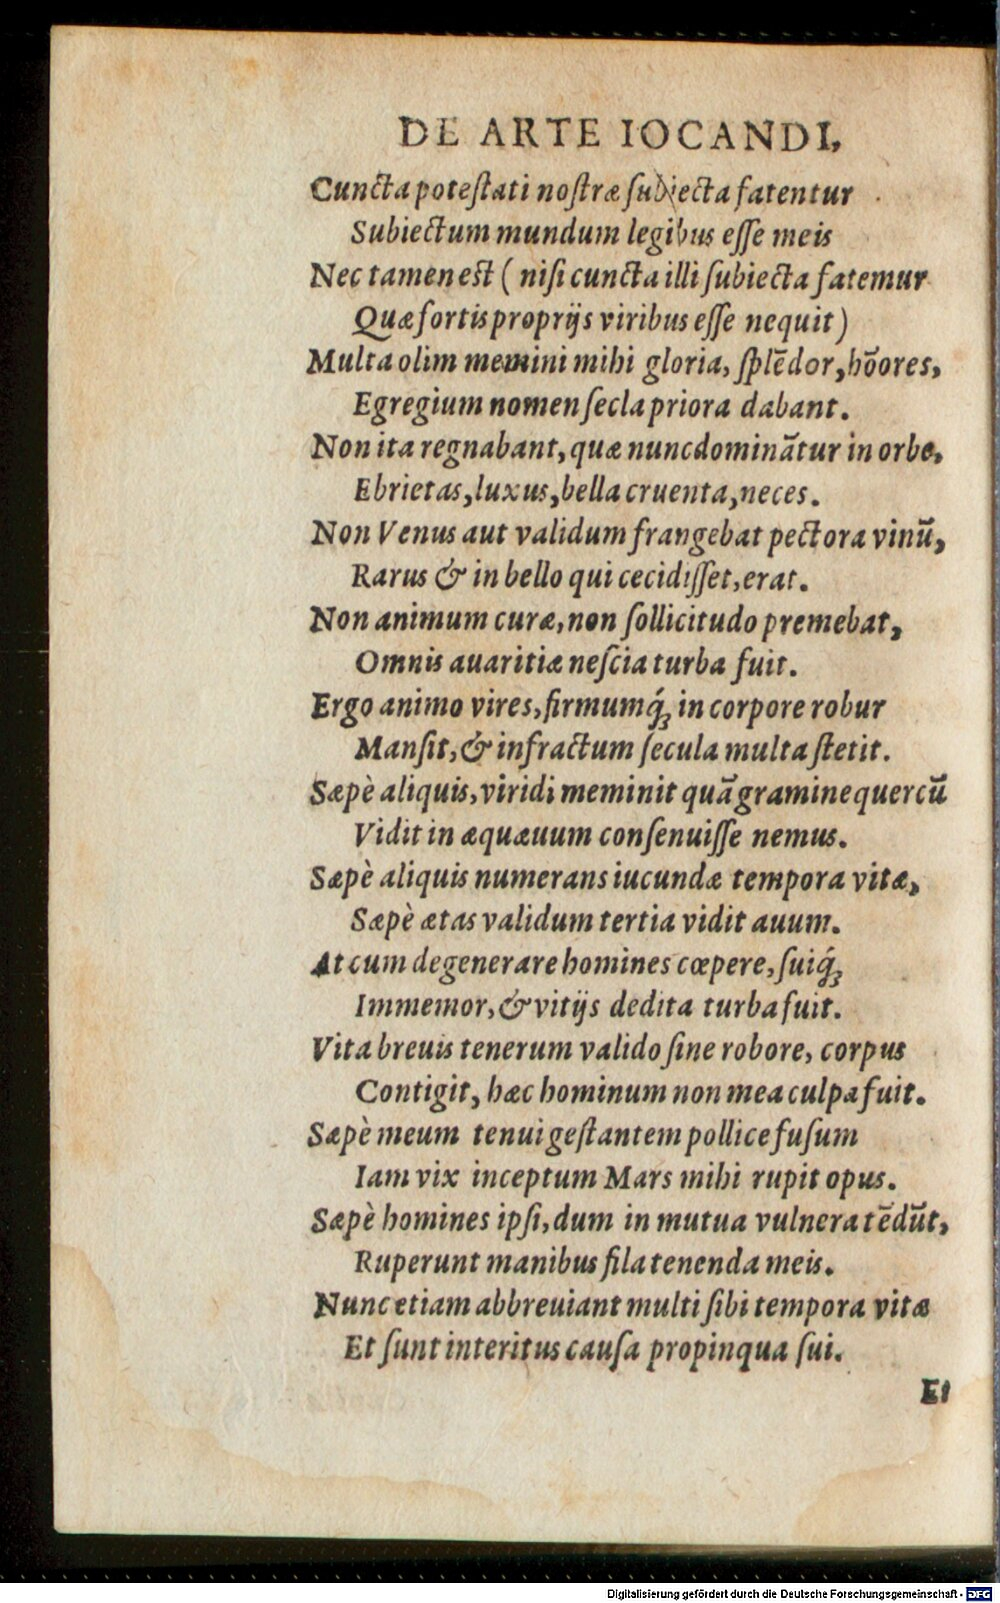 DE ARTE IOCANDI,
Cuncta poteſtati noſtræ ſubiecta fatentur
Subiectum mundum legibus eſſe meis
Nec tamen eſt ( niſi cuncta illi ſubiecta fatemur
Quæ fortis proprijs viribus eſſe nequit )
Multa olim memini mihi gloria, ſplēdor, hōores,
Egregium nomen ſecla priora dabant.
Non ita regnabant, quæ nunc dominātur in orbe,
Ebrietas, luxus, bella cruenta, neces.
Non Venus aut validum frangebat pectora vinū,
Rarus & in bello qui cecidiſſet, erat.
Non animum curæ, non ſollicitudo premebat,
Omnis auaritiæ neſcia turba fuit.
Ergo animo vires, firmumq́ꝫ in corpore robur
Manſit, & infractum ſecula multa ſtetit.
Sæpè aliquis, viridi meminit quā gramine quercū
Vidit in æquæuum conſenuiſſe nemus.
Sæpè aliquis numerans iucundæ tempora vitæ,
Sæpè ætas validum tertia vidit auum.
At cum degenerare homines cœpere, ſuiq́ꝫ
Immemor, & vitijs dedita turba fuit.
Vita breuis tenerum valido ſine robore, corpus
Contigit, hæc hominum non mea culpa fuit.
Sæpè meum tenui geſtantem pollice fuſum
Iam vix inceptum Mars mihi rupit opus.
Sæpè homines ipſi, dum in mutua vulnera tēdūt,
Ruperunt manibus fila tenenda meis.
Nunc etiam abbreuiant multi ſibi tempora vitæ
Et ſunt interitus cauſa propinqua ſui.
Et
Digitalisierung gefördert durch die Deutsche Forschungsgemeinschaft - DFG